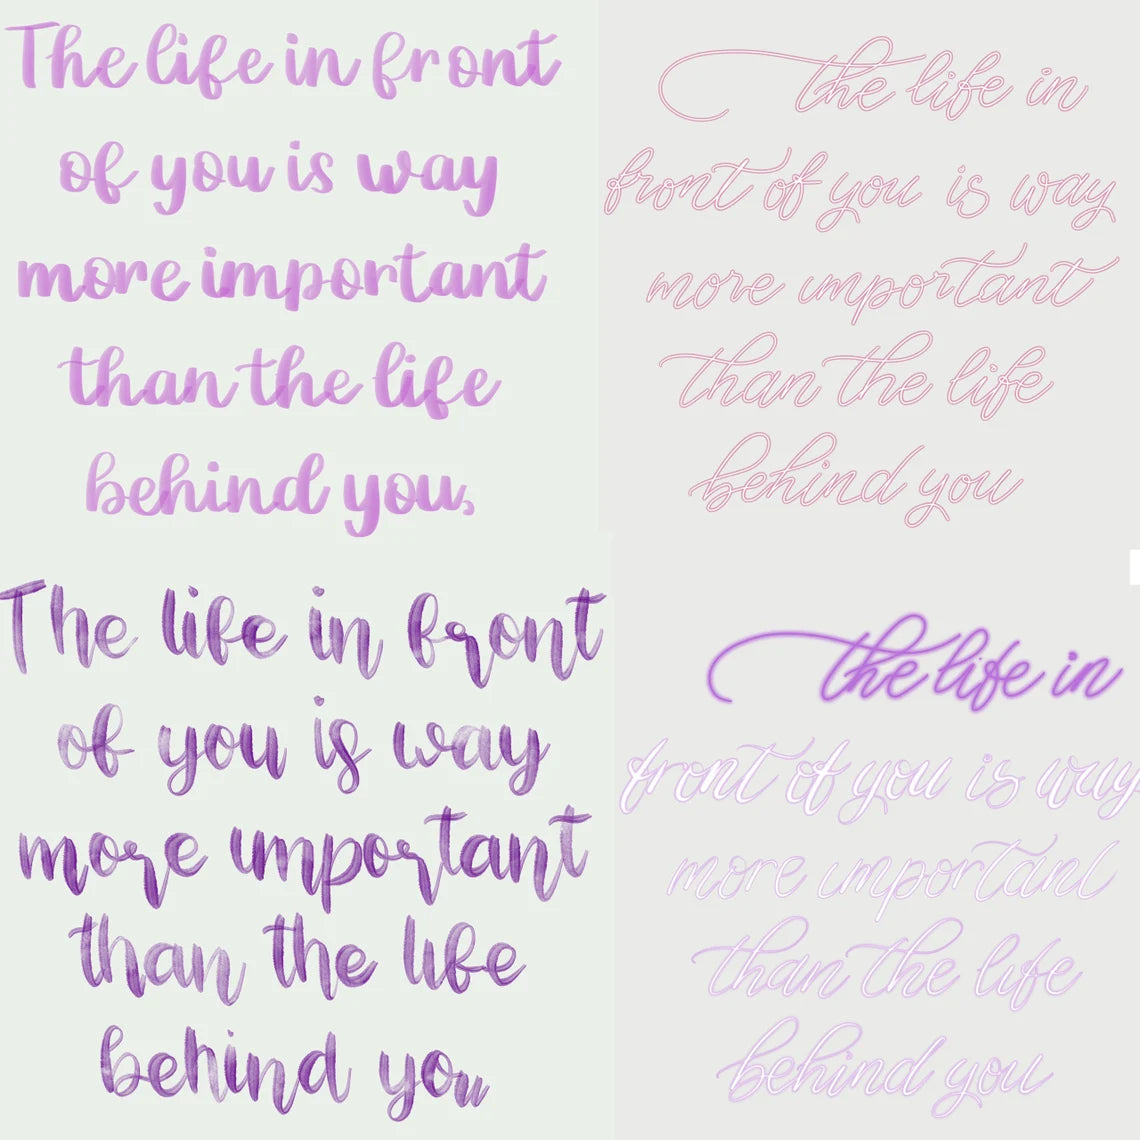 The life in front
of you is way
more important
than the life
behind you,
the life in
front of you is way
more important
than the life
behind you
The life in front
of you is way
more important
than the life
behind you
the life in
front of you is way
more important
than the life
behind you